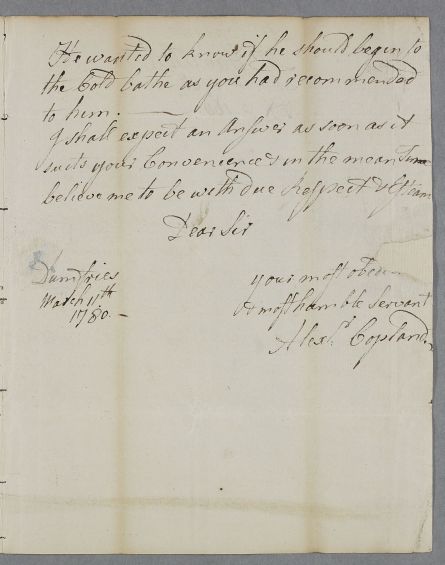 He wanted to know if he should begin to
the Cold bathe as you had recommended
to him.
I shall expect an Answer as soon as it
suits your Convenience & in the mean time
believe me to be with due Respect & Esteem
Dear Sir
your most obed
& most humble Servant
Alexr. Copland
Dumfries
March 11th
1780.